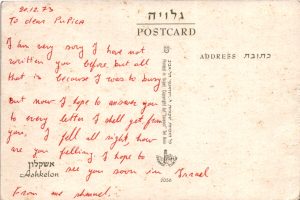 20.12.73
To dear Pupica
I am very sory I have not
written you before but all
that is because I was to busy
But now I hope to answer you
to every letter I shell get from
you, I fell all right, how
are you felling I hope to
see you soon in Israel
From me shmuel.
גלויה
POSTCARD
ADDRESS כתובת
אשקלון
Ashkelon